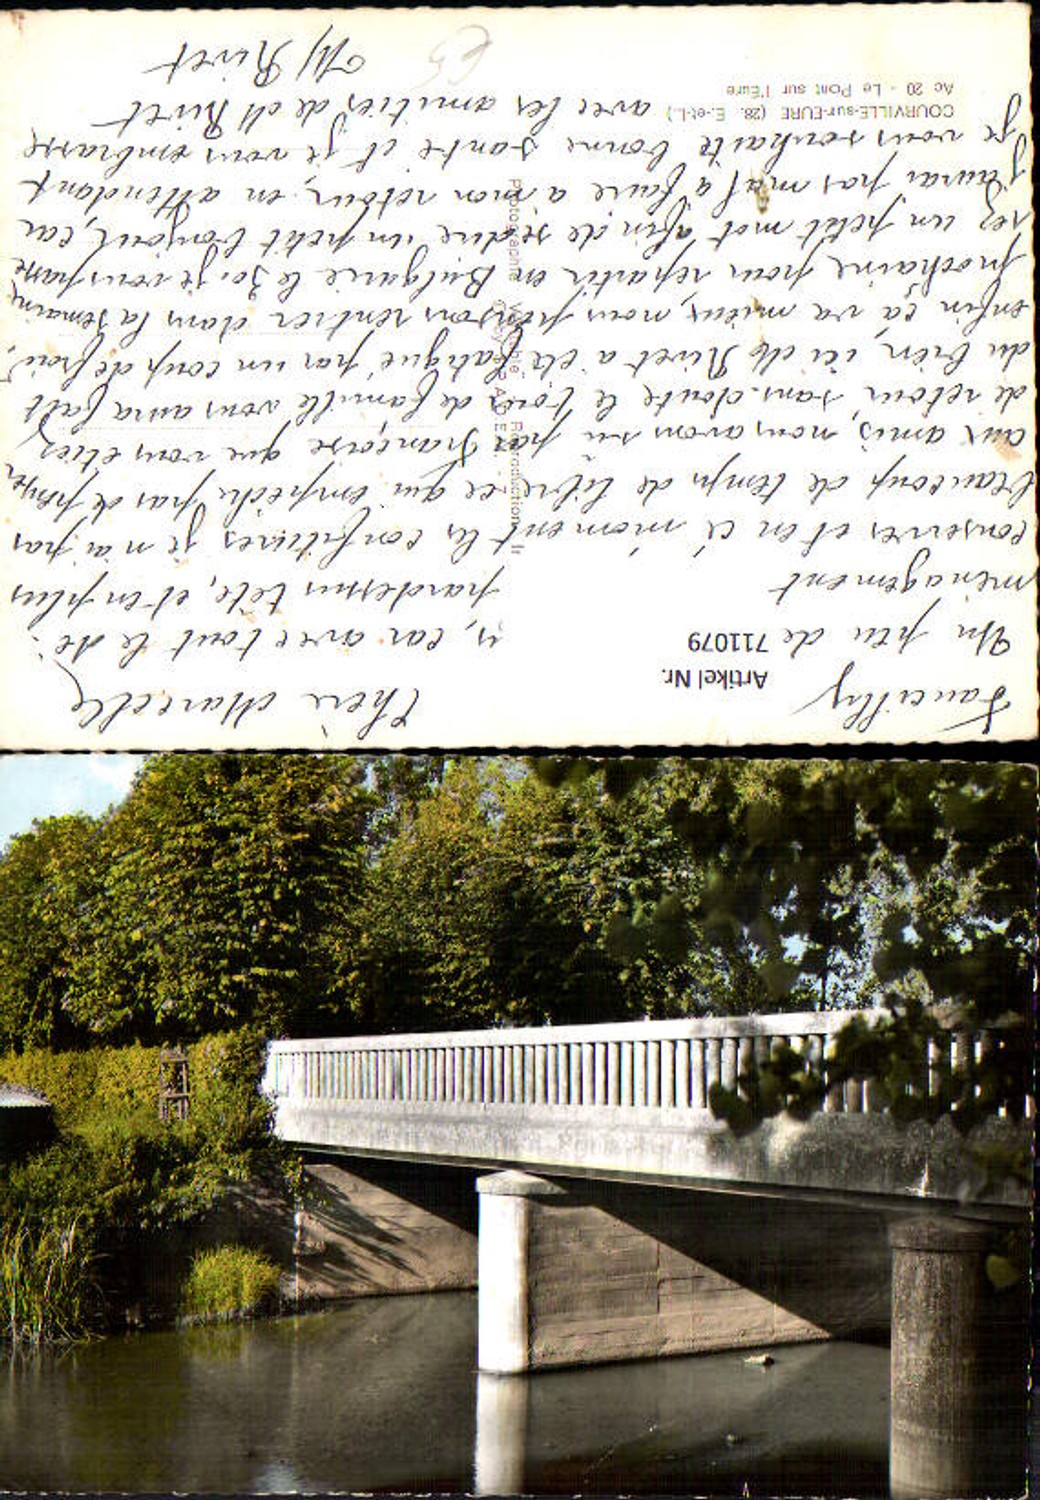 Fancilly
Chère Marcelle
Un peu de
Artikel Nr.
711079
, car avec tout le dé-
ménagement
pardessus tête, et en plus
conserves et en ce moment les confitures je n'ai pas
beaucoup de temps de libre, ce qui empêche pas de penser
aux amis, nous avons su par Françoise que vous étiez
de retour, sans doute le bois de famille vous aura fait
du bien, ici Mr Rivet a été fatigué par un coup de froid,
enfin ça va mieux, nous pensons rentrer dans la semaine
prochaine pour repartir en Bulgarie le 30, je vous passe
un petit mot afin de se dire un petit bonjour, car
j'aurai pas mal à faire a mon retour, en attendant
Je vous souhaite bonne santé et je vous embrasse
avec les amitiés de Mr Rivet
M Rivet
COURVILLE-sur-EURE (28. E.-et-L.)
Ac 20 - Le Pont sur l'Eure
Photographie Véritable - Reproduction